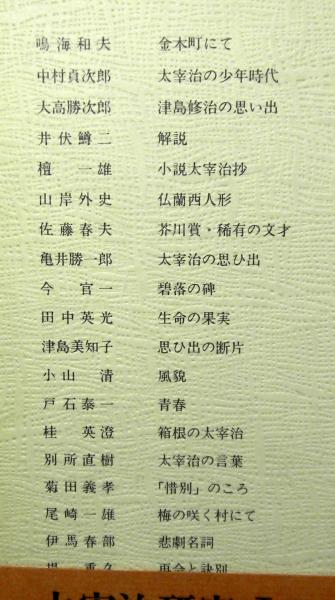 鳴海和夫 金木町にて
中村貞次郎 太宰治の少年時代
大高勝次郎 津島修治の思い出
井伏鱒二 解説
檀一雄 小説太宰治抄
山岸外史 仏蘭西人形
佐藤春夫 芥川賞・稀有の文才
亀井勝一郎 太宰治の思ひ出
今官一 碧落の碑
田中英光 生命の果実
津島美知子 思ひ出の断片
小山清 風貌
戸石泰一 青春
桂英澄 箱根の太宰治
別所直樹 太宰治の言葉
菊田義孝 「惜別」のころ
尾崎一雄 梅の咲く村にて
伊馬春部 悲劇名詞
堤重久 再会と訣別